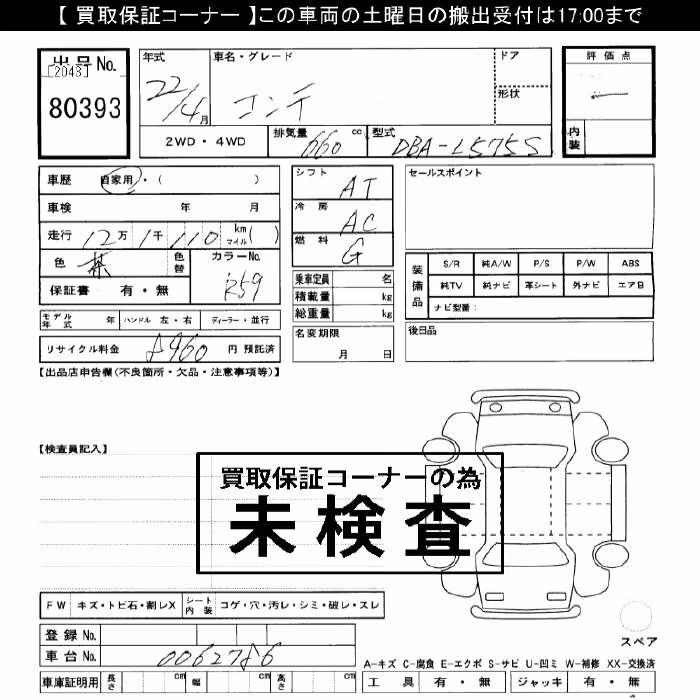 【 買取保証コーナー 】この車両の土曜日の搬出受付は17:00まで
出品No.
[2043]
80393
年式
22/4月
車名・グレード
コンテ
ドア
形状
評価点
内装
2WD・4WD
排気量 660 cc
型式 DBA-L575S
車歴 自家用・( )
車検 年 月
走行 12万 1千 110 km マイル ( )
色 茶 色替
カラーNo.
R59
保証書 有・無
シフト AT
冷房 AC
燃料 G
乗車定員 名
積載量 kg
総重量 kg
名変期限
月 日
セールスポイント
装備品
S/R 純A/W P/S P/W ABS
純TV 純ナビ 革シート 外ナビ エアB
ナビ型番:
後日品
モデル年式 年 ハンドル 左・右 ディーラー・並行
リサイクル料金 8960 円 預託済
【出品店申告欄(不良箇所・欠品・注意事項等)】
【検査員記入】
買取保証コーナーの為
未検査
FW キズ・トビ石・割レX シート内装 コゲ・穴・汚レ・シミ・破レ・スレ
登録No.
車台No. 0062786
車庫証明用 長さ cm 幅 cm 高さ cm
スペア
A-キズ C-腐食 E-エクボ S-サビ U-凹ミ W-補修 XX-交換済
工具 有・無 ジャッキ 有・無